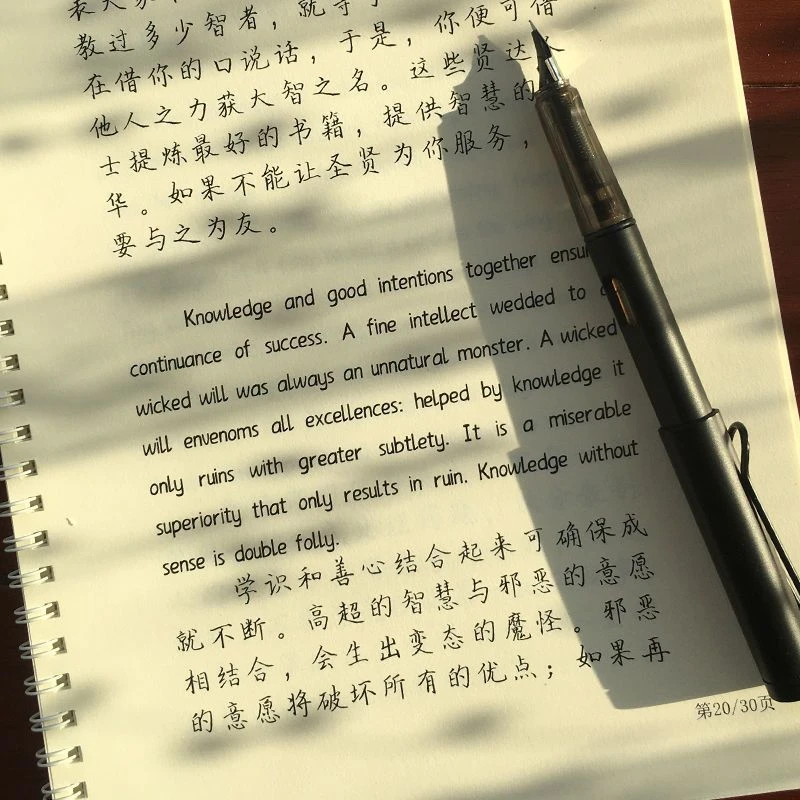 教过多少智者，就等于
在借你的口说话，于是，你便可借
他人之力获大智之名。这些贤达人
士提炼最好的书籍，提供智慧的
华。如果不能让圣贤为你服务，
要与之为友。
Knowledge and good intentions together ensu
continuance of success. A fine intellect wedded to
wicked will was always an unnatural monster. A wicked
will envenoms all excellences: helped by knowledge it
only ruins with greater subtlety. It is a miserable
superiority that only results in ruin. Knowledge without
sense is double folly.
学识和善心结合起来可确保成
就不断。高超的智慧与邪恶的意愿
相结合，会生出变态的魔怪。邪恶
的意愿将破坏所有的优点；如果再
第20/30页